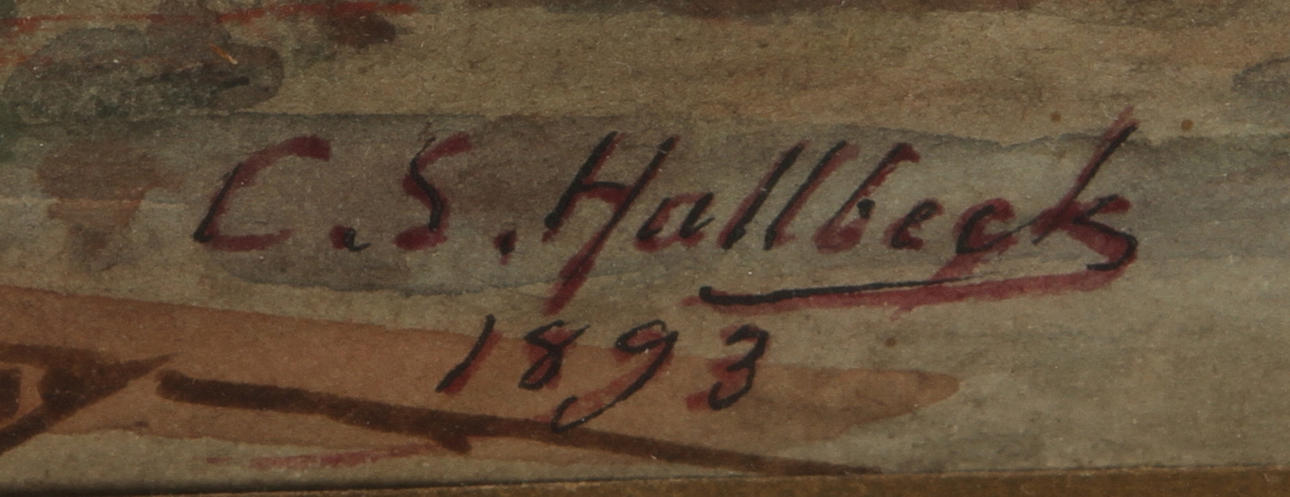 C.S.Hallbeck
1893